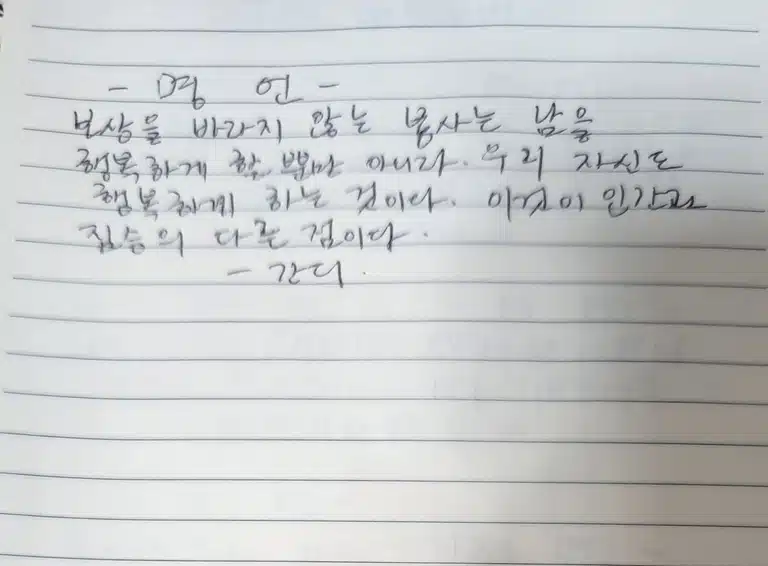 - 명 언 -
보상을 바라지 않는 봉사는 남을
행복하게 할 뿐만 아니라. 우리 자신도
행복하게 하는 것이다. 이것이 인간과
짐승의 다른 점이다.
- 간디.